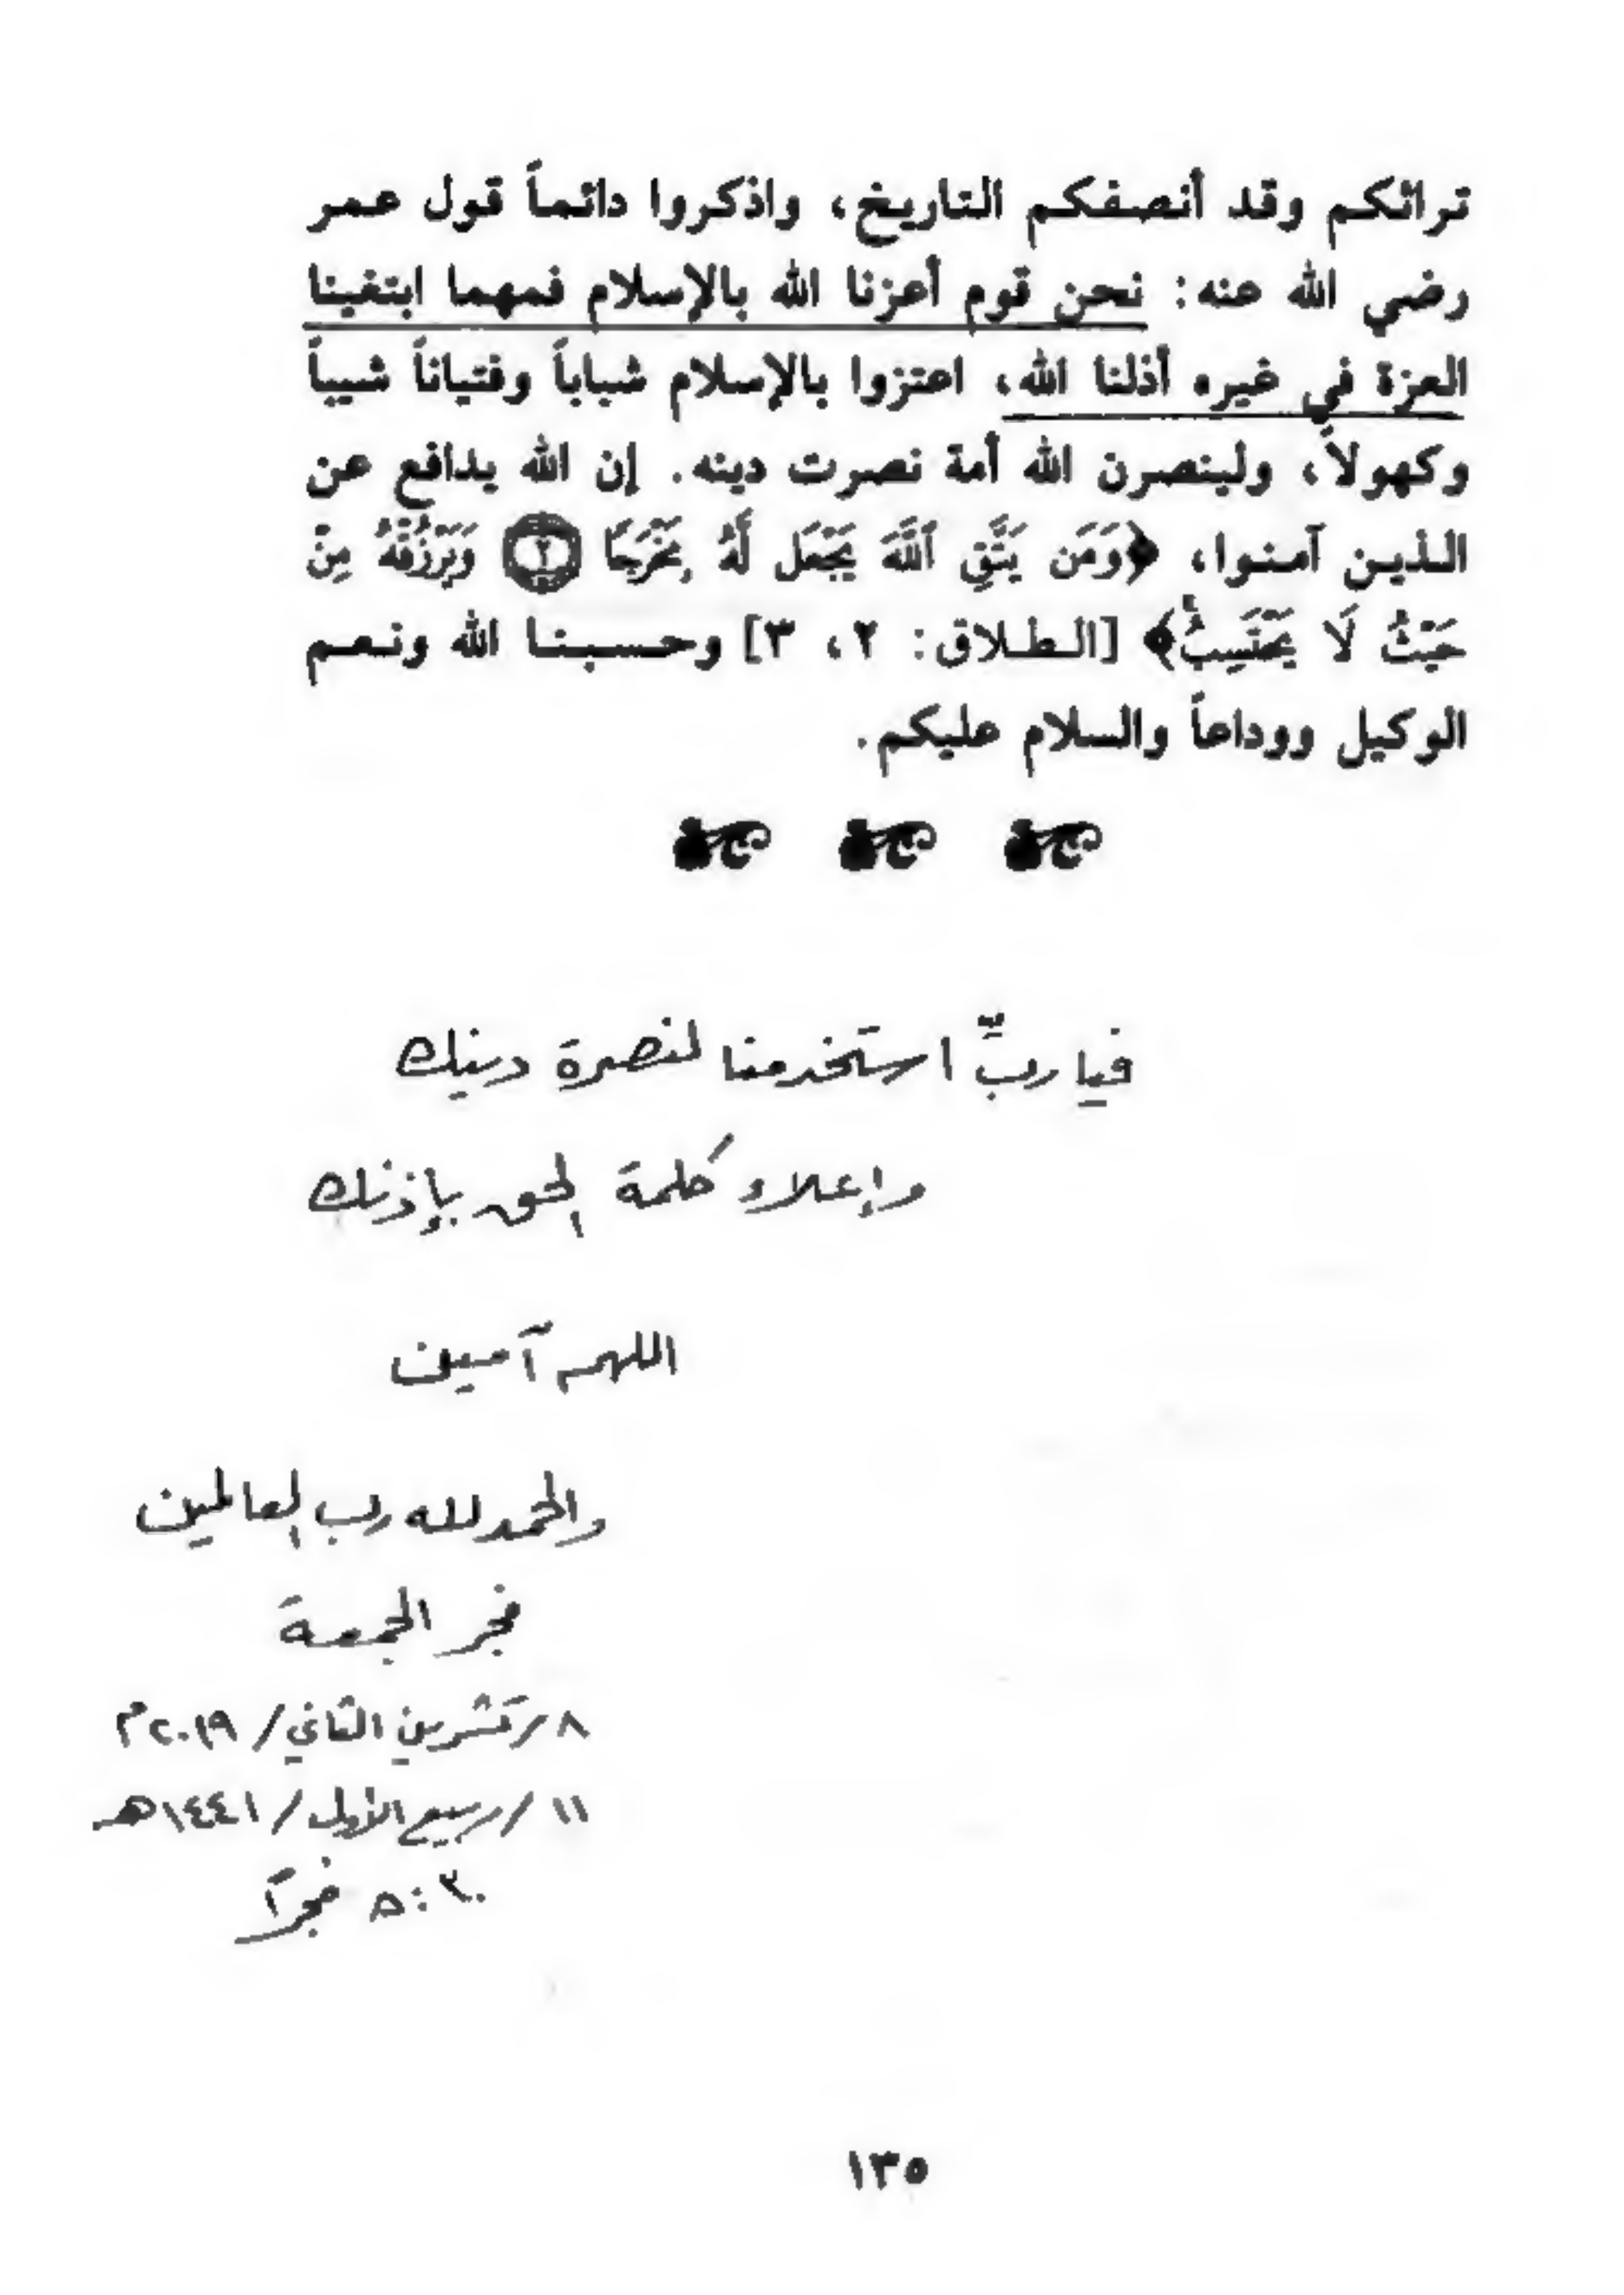 تراثكم وقد أنصفكم التاريخ، واذكروا دائماً قول عمر
رضي الله عنه: نحن قوم أعزنا الله بالإسلام فمهما ابتغينا
العزة في غيره أذلنا الله، اعتزوا بالإسلام شباباً وفتياناً شيباً
وكهولاً، ولينصرن الله أمة نصرت دينه. إن الله يدافع عن
الذين آمنوا، ﴿وَمَن يَتَّقِ ٱللَّهَ يَجْعَل لَّهُ مَخْرَجًا ٢ وَيَرْزُقْهُ مِنْ
حَيْثُ لَا يَحْتَسِبُ﴾ [الطلاق: ٢، ٣] وحسبنا الله ونعم
الوكيل ووداعاً والسلام عليكم.
فيا ربِّ استخدمنا لنصرة دينك
وإعلاء كلمة الحق بإذنك
اللهم آمين
والحمد لله رب العالمين
فجر الجمعة
٨/تشرين الثاني/٢٠١٩م
١١/ربيع الأول/١٤٤١هـ
٥:٣٠ فجراً
١٣٥